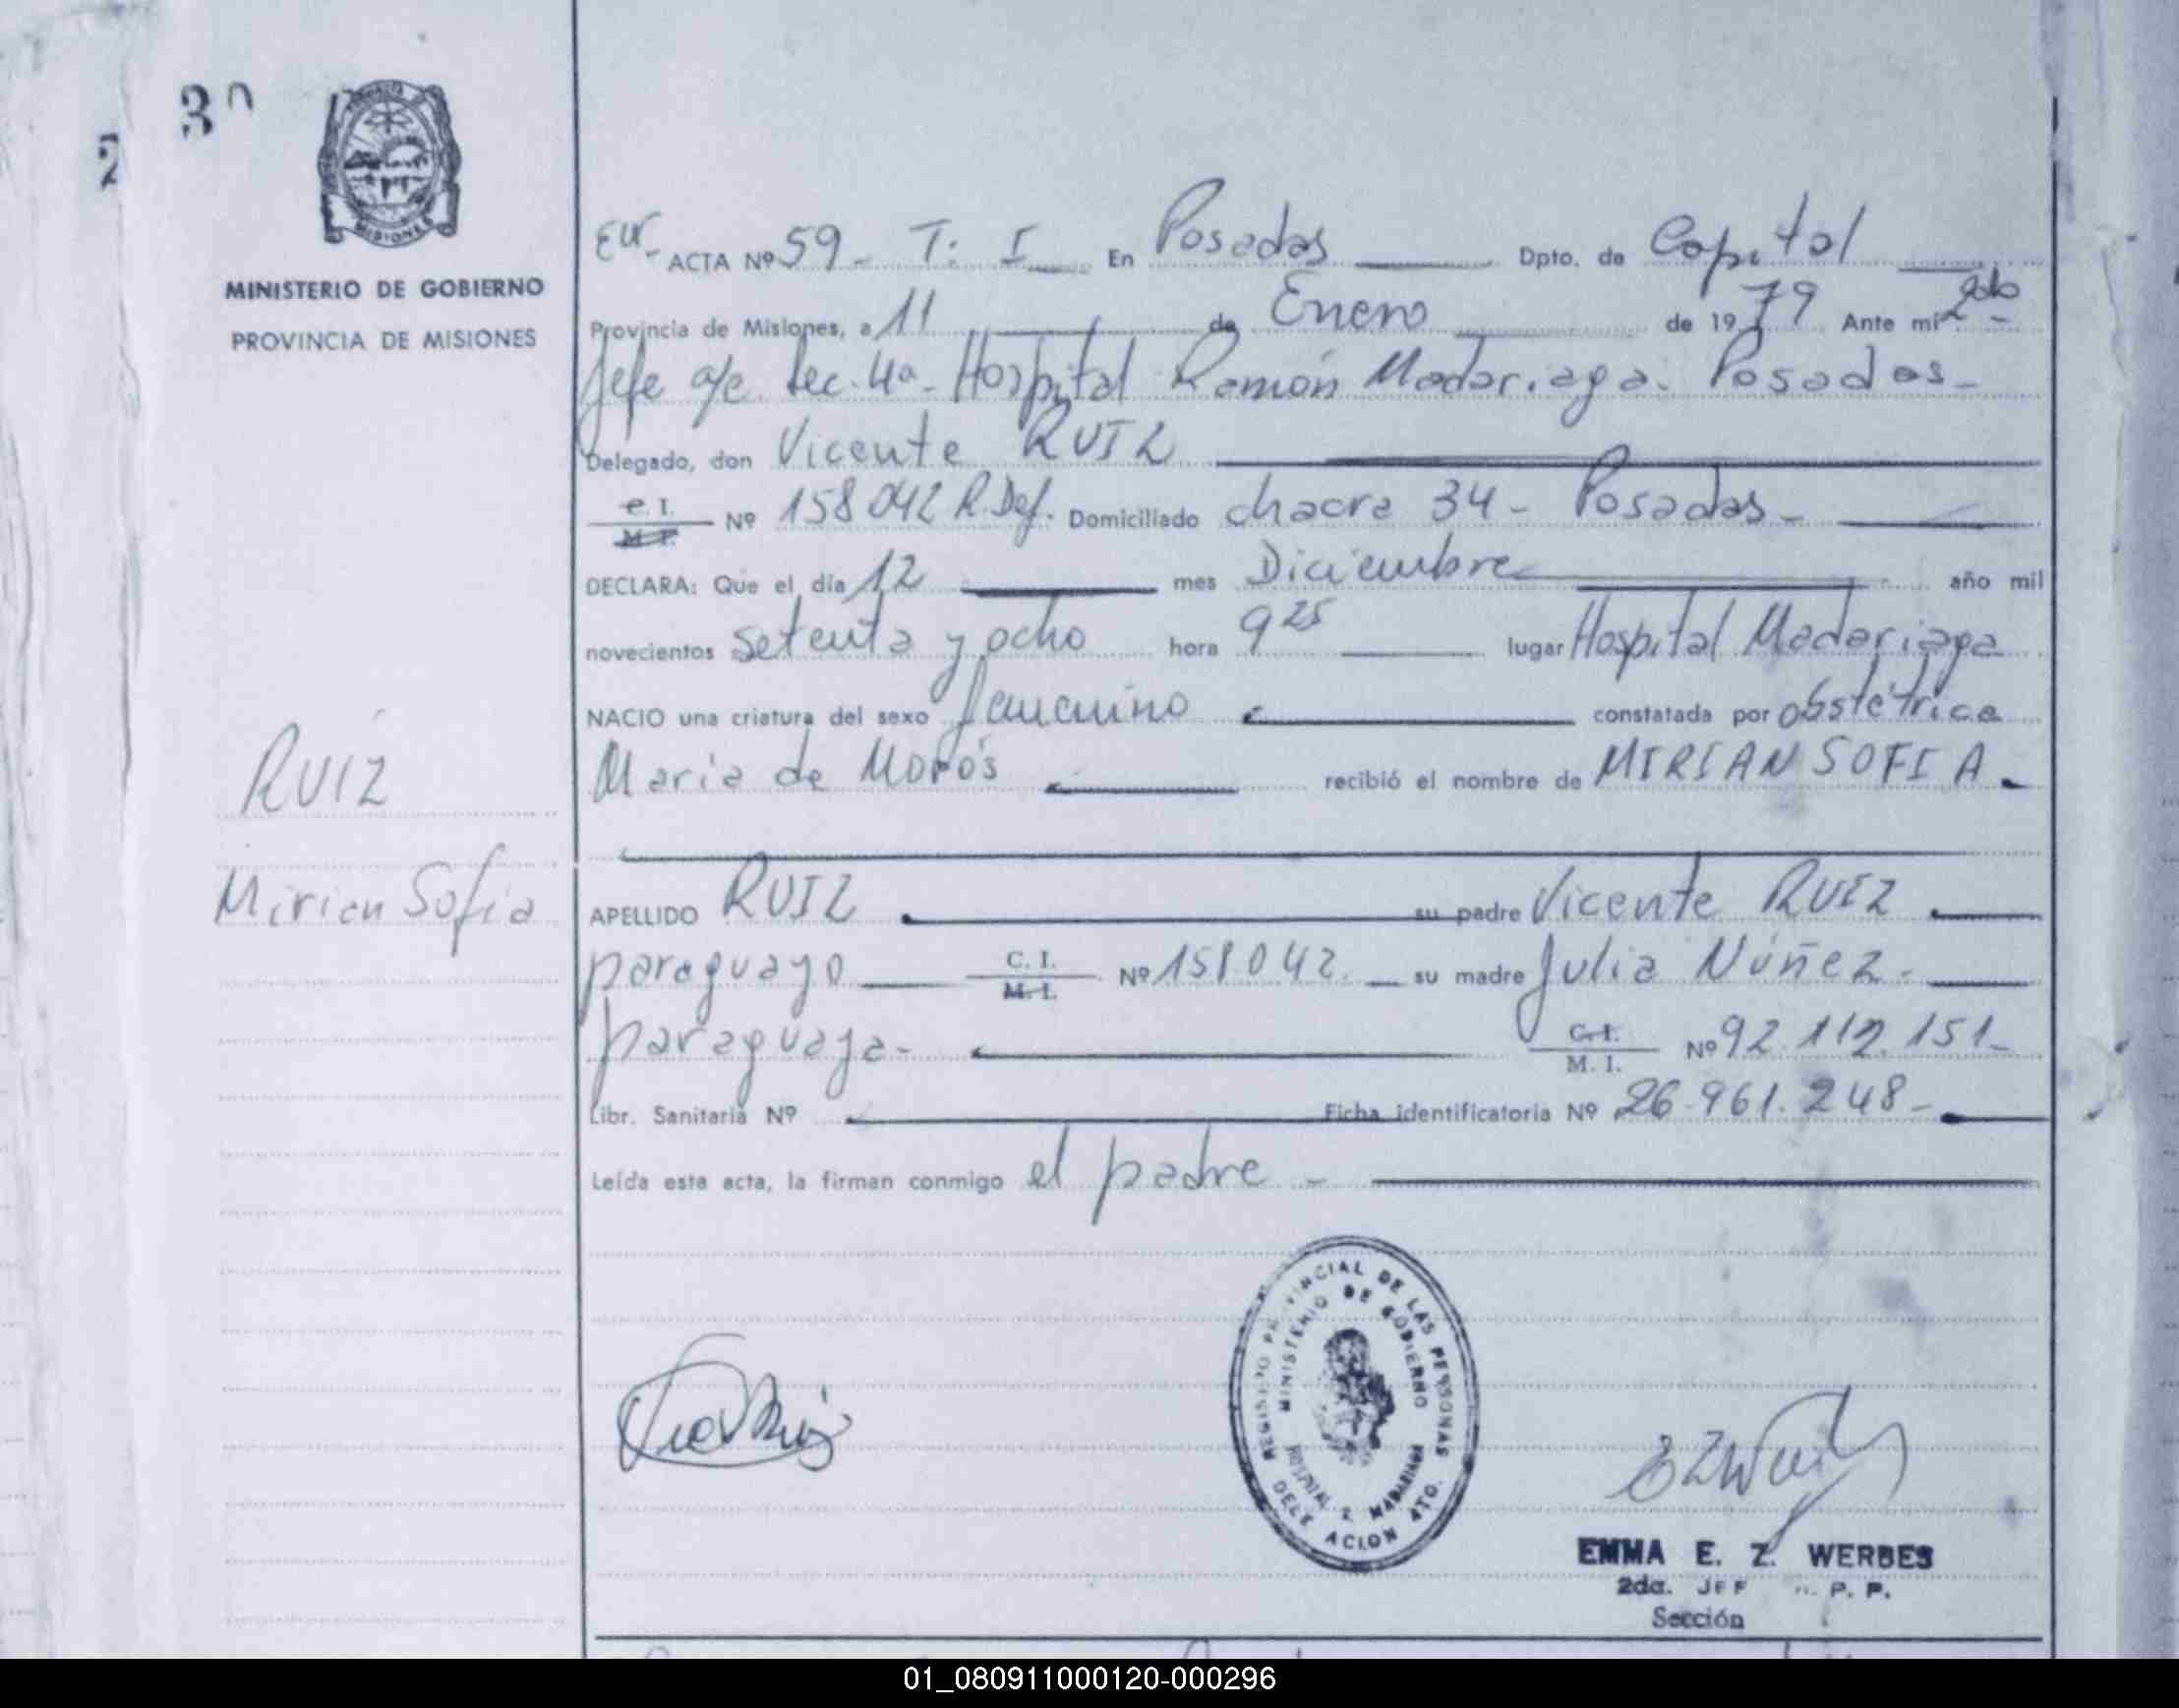 3
2
MISIONES
MINISTERIO DE GOBIERNO
PROVINCIA DE MISIONES
RUIZ
Mirian Sofia
ACTA Nº 59 - T: I En Posadas Dpto. de Capital
Provincia de Misiones, a 11 de Enero de 1979 Ante mi 2do
Jefe a/c. Sec. 4a - Hospital Ramón Madariaga. Posadas -
Delegado, don Vicente RUIZ
C. I. M. I. Nº 158042 R. Def. Domiciliado chacra 34 - Posadas -
DECLARA: Que el día 12 mes Diciembre año mil
novecientos setenta y ocho hora 9 25 lugar Hospital Madariaga
NACIO una criatura del sexo femenino constatada por obstétrica
Maria de Morós recibió el nombre de MIRIAN SOFIA.
APELLIDO RUIZ su padre Vicente RUIZ
paraguayo C. I. M. I. Nº 158.042. su madre Julia Núñez.
paraguaya - C. I. M. I. Nº 92.112.151 -
Libr. Sanitaria Nº Ficha identificatoria Nº 26-961.248 -
Leída esta acta, la firman conmigo el padre -
REGISTRO PROVINCIAL DE LAS PERSONAS
MINISTERIO DE GOBIERNO
HOSPITAL R. MADARIAGA
DELEGACION 4TO.
EMMA E. Z. WERBES
2da. P. P.
Sección
01_080911000120-000296